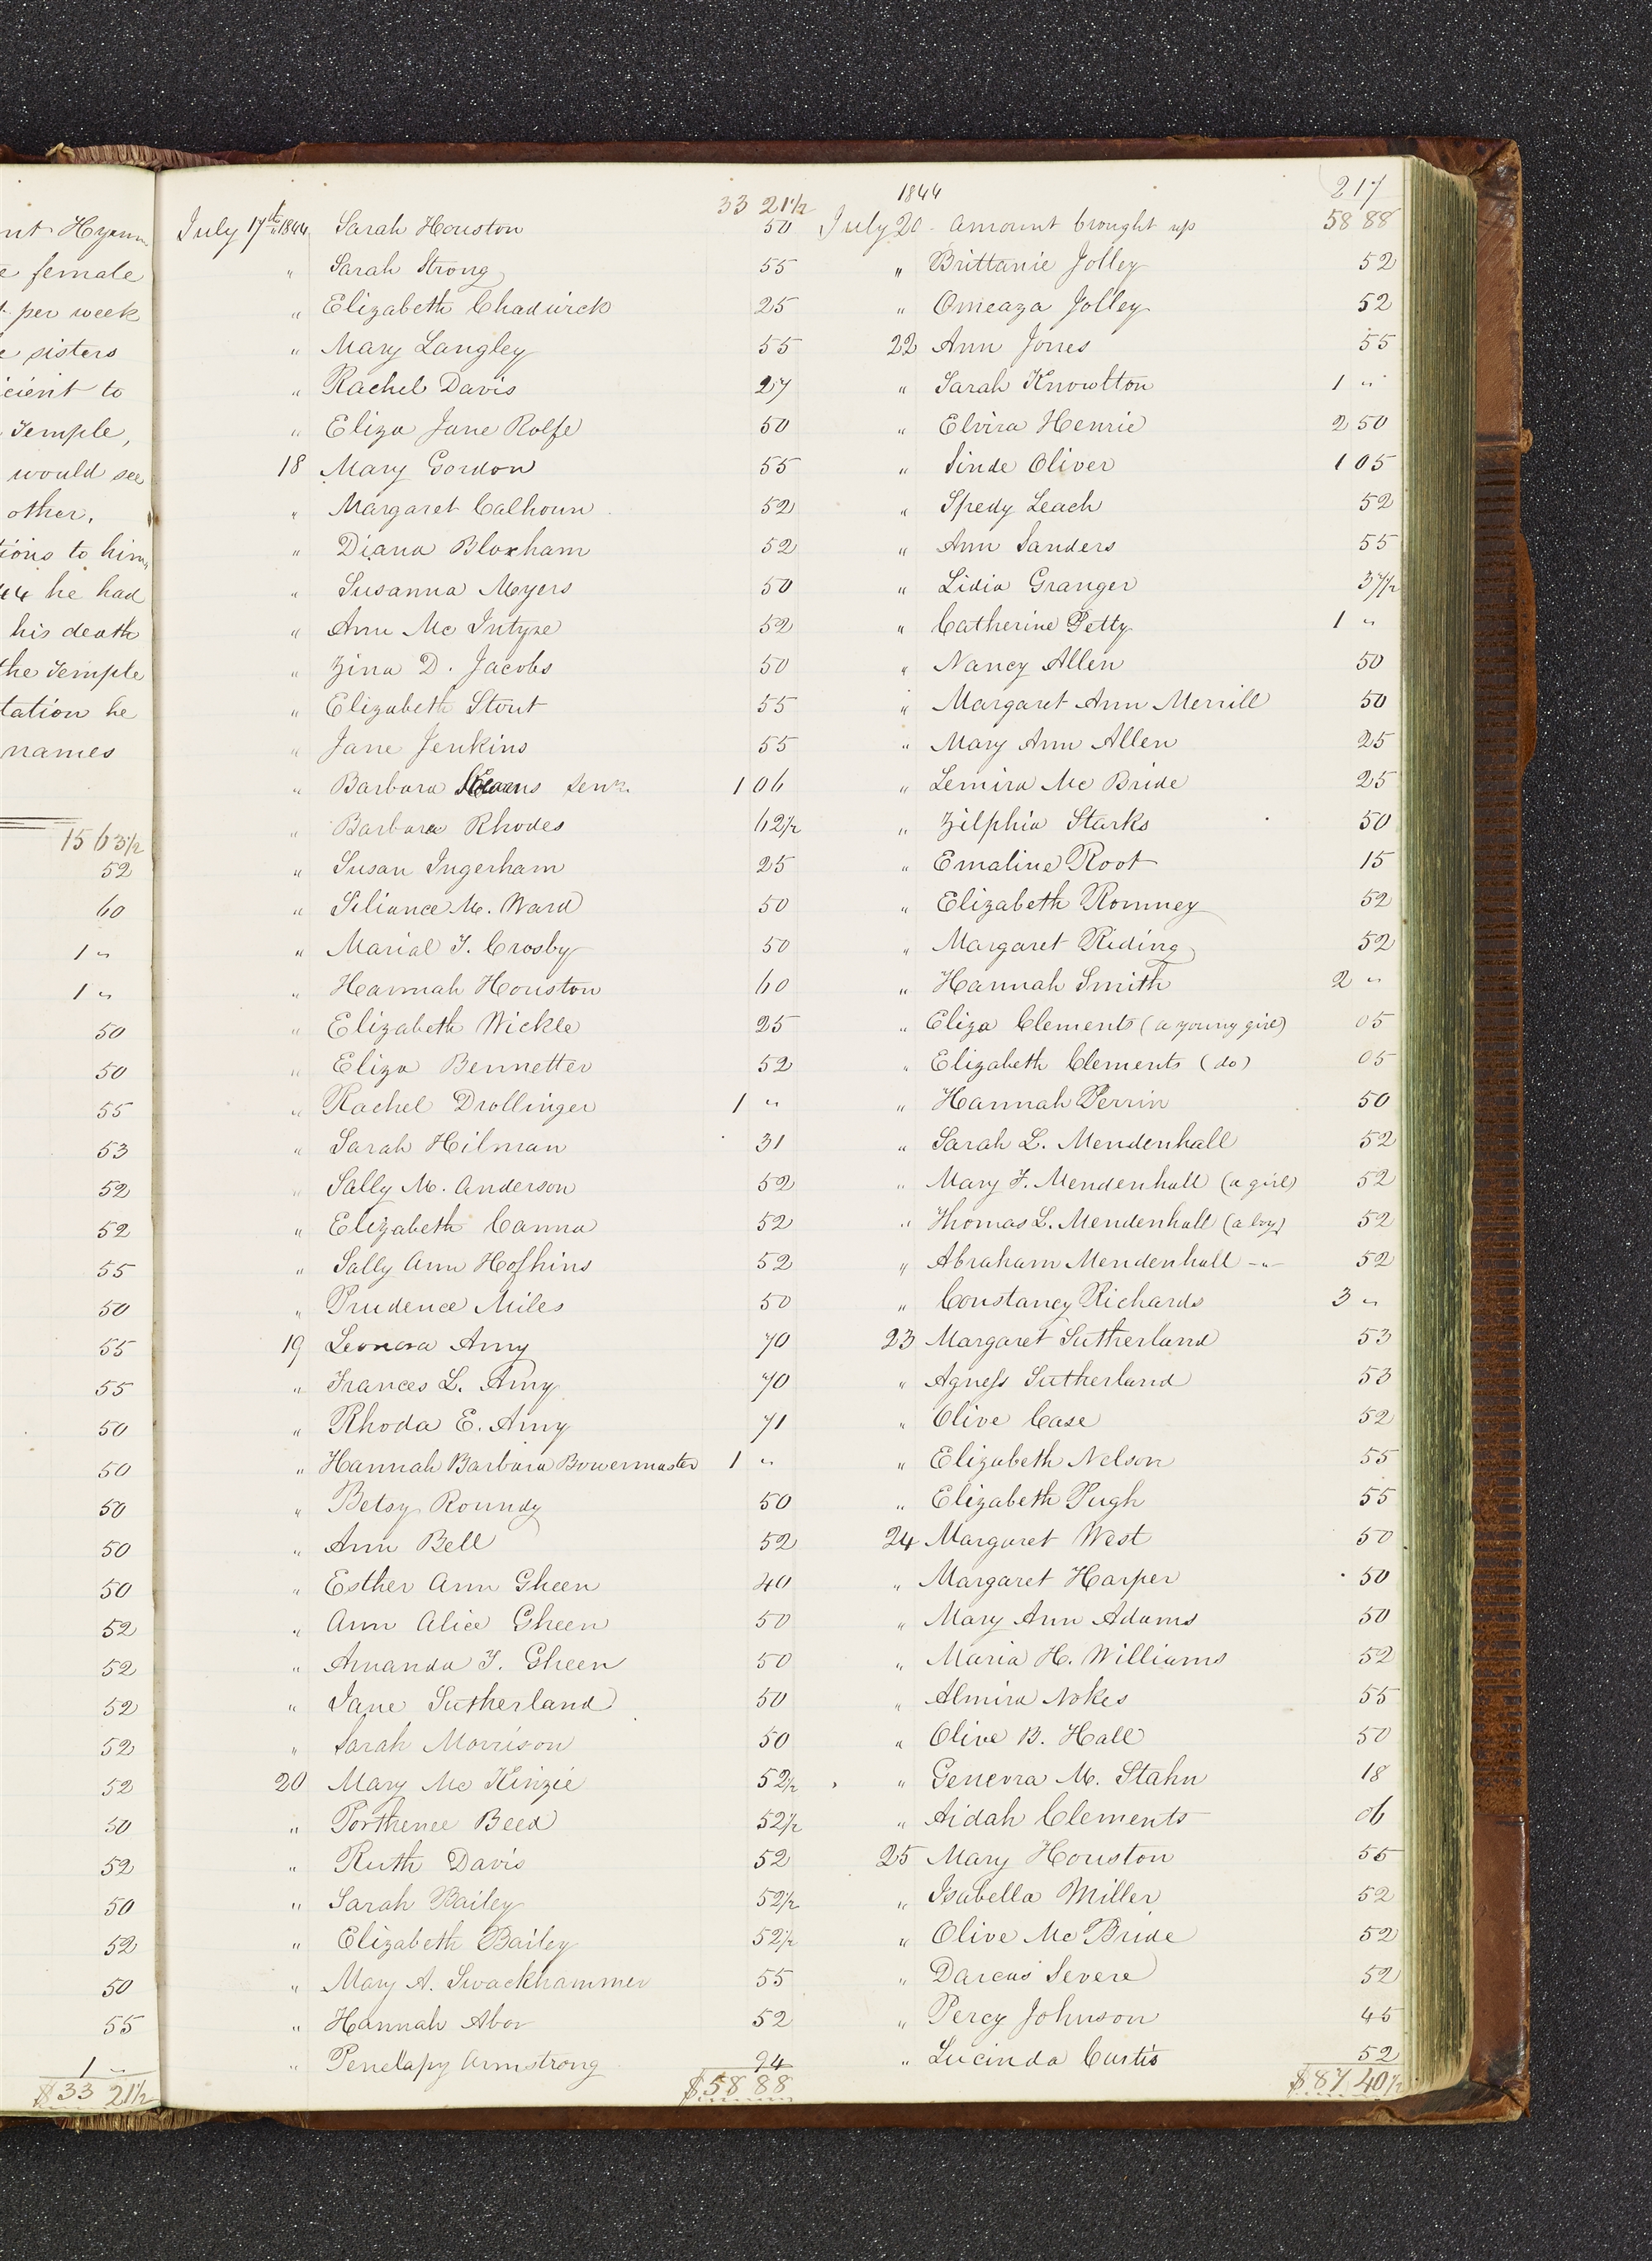 nt Hyrum
e female
t per week
e sisters
icient to
Temple,
would see
other.
tions to him,
44 he had
his death
the Temple
tation he
names
15 63½
52
60
1 "
1 "
50
50
55
53
52
52
55
50
55
55
50
50
50
50
50
52
52
52
52
52
50
52
50
52
50
55
1 "
$33 21½
33 21½
July 17th 1844 Sarah Houston 50
" Sarah Strong 55
" Elizabeth Chadwick 25
" Mary Langley 55
" Rachel Davis 27
" Eliza Jane Rolfe 50
18 Mary Gordon 55
" Margaret Calhoun 52
" Diana Bloxham 52
" Susanna Meyers 50
" Ann Mc Intyre 52
" Zina D. Jacobs 50
" Elizabeth Stout 55
" Jane Jenkins 55
" Barbara senr. 1 06
" Barbara Rhodes 62½
" Susan Ingerham 25
" Siliance M. Ward 50
" Marial T. Crosby 50
" Hannah Houston 60
" Elizabeth Wickle 25
" Eliza Bennetter 52
" Rachel Drollinger 1 "
" Sarah Hilman 31
" Sally M. Anderson 52
" Elizabeth Canna 52
" Sally Ann Hoskins 52
" Prudence Miles 50
19 Leonora Amy 70
" Frances L. Amy 70
" Rhoda E. Amy 71
" Hannah Barbara Bowermaster 1 "
" Betsy Roundy 50
" Ann Bell 52
" Esther Ann Gheen 40
" Ann Alice Gheen 50
" Amanda T. Gheen 50
" Jane Sutherland 50
" Sarah Morrison 50
20 Mary Mc Kinzie 52½
" Porthenee Beed 52½
" Ruth Davis 52
" Sarah Bailey 52½
" Elizabeth Bailey 52½
" Mary A. Swackhammer 55
" Hannah Abor 52
" Penelapy Armstrong 94
$58 88
217
1844
July 20 - Amount brought up 58 88
" Brittanie Jolley 52
" Omeaza Jolley 52
22 Ann Jones 55
" Sarah Knowlton 1 "
" Elvira Henrie 2 50
" Sinde Oliver 1 05
" Spedy Leach 52
" Ann Sanders 55
" Lidia Granger 37½
" Catherine Petty 1 "
" Nancy Allen 50
" Margaret Ann Merrill 50
" Mary Ann Allen 25
" Lemira Mc Bride 25
" Zilphia Starks 50
" Emaline Root 15
" Elizabeth Romney 52
" Margaret Riding 52
" Hannah Smith 2 "
" Eliza Clements (a young girl) 05
" Elizabeth Clements (do) 05
" Hannah Perrin 50
" Sarah L. Mendenhall 52
" Mary F. Mendenhall (a girl) 52
" Thomas L. Mendenhall (a boy) 52
" Abraham Mendenhall -"- 52
" Constancy Richards 3 "
23 Margaret Sutherland 53
" Agness Sutherland 53
" Olive Case 52
" Elizabeth Nelson 55
" Elizabeth Pugh 55
24 Margaret West 50
" Margaret Harper 50
" Mary Ann Adams 50
" Maria H. Williams 52
" Almira Nokes 55
" Olive B. Hall 50
" Genevra M. Stahn 18
" Aidah Clements 06
25 Mary Houston 55
" Isabella Miller 52
" Olive Mc Bride 52
" Darcus Severe 52
" Percy Johnson 45
" Lucinda Curtis 52
$87 40½